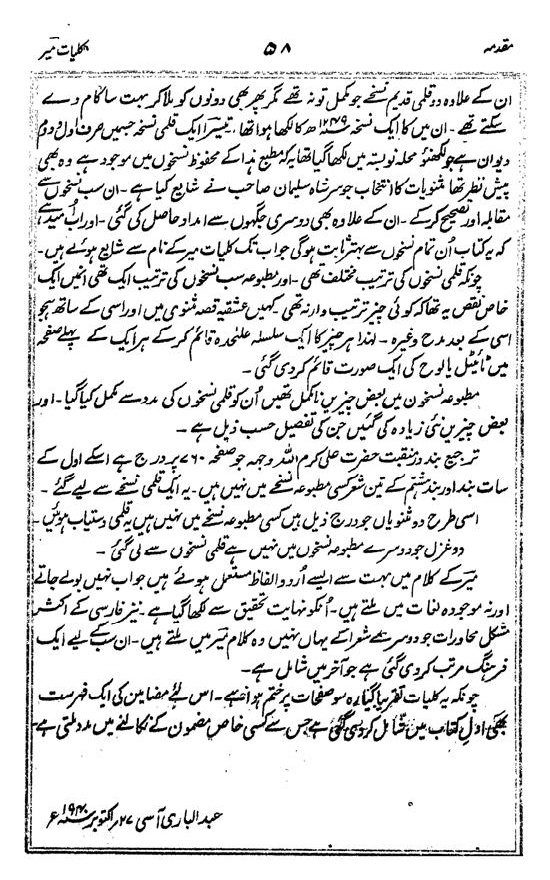 مقدمہ ۵۸ کلیات میر
ان کے علاوہ دو قلمی قدیم نسخے جو مکمل تو نہ تھے مگر پھر بھی دونوں کو ملا کر بہت سا کام دے
سکتے تھے ۔ ان میں کا ایک نسخہ ۱۲۴۹ھ کا لکھا ہوا تھا ، تیسرا ایک قلمی نسخہ جسمیں صرف اول و دوم
دیوان ہے جو لکھنؤ محلہ نوبستہ میں لکھا گیا تھا یہ کہ مطبع ہذا کے محفوظ نسخوں میں موجود ہے وہ بھی
پیش نظر تھا مثنویات کا انتخاب جو سر شاہ سلیمان صاحب نے شایع کیا ہے ۔ ان سب نسخوں سے
مقابلہ اور تصحیح کرکے ۔ ان کے علاوہ بھی دوسری جگہوں سے امداد حاصل کی گئی ۔ اور اب اُمید ہے
کہ یہ کتاب اُن تمام نسخوں سے بہتر ثابت ہوگی جو اب تک کلیات میر کے نام سے شایع ہوئے ہیں ۔
چونکہ قلمی نسخوں کی ترتیب مختلف تھی ۔ اور مطبوعہ سب نسخوں کی ترتیب ایک تھی انہیں ایک
خاص نقص یہ تھا کہ کوئی چیز ترتیب وار نہ تھی ۔ کہیں عشقیہ قصہ مثنوی میں اور اسی کے ساتھ ہجو
اسی کے بعد مدح وغیرہ ۔ لہذا ہر چیز کا ایک سلسلہ علٰحدہ قائم کرکے ہر ایک کے پہلے صفحہ
میں ٹائیٹل یا لوح کی ایک صورت قائم کر دی گئی ۔
مطبوعہ نسخوں میں بعض چیزیں نامکمل تھیں اُن کو قلمی نسخوں کی مدد سے مکمل کیا گیا ۔ اور
بعض چیزیں نئی زیادہ کی گئیں جن کی تفصیل حسب ذیل ہے ۔
ترجیع بند در منقبت حضرت علی کرم اللہ وجہہ جو صفحہ ۷۶۰ پر درج ہے اسکے اول کے
سات بند اور بند ہشتم کے تین شعر کسی مطبوعہ نسخے میں نہیں ہیں ۔ یہ ایک قلمی نسخے سے لیے گئے ۔
اسی طرح دو مثنویاں جو درج ذیل ہیں کسی مطبوعہ نسخے میں نہیں ہیں یہ قلمی دستیاب ہوئیں ۔
دو غزل جو دوسرے مطبوعہ نسخوں میں نہیں ہے قلمی نسخوں سے لی گئی ۔
میر کے کلام میں بہت سے ایسے اُردو الفاظ مستعمل ہوئے ہیں جو اب نہیں بولے جاتے
اور نہ موجودہ لغات میں ملتے ہیں ۔ اُنکو نہایت تحقیق سے لکھا گیا ہے ۔ نیز فارسی کے اکثر
مشکل محاورات جو دوسرے شعرا کے یہاں نہیں وہ کلام میر میں ملتے ہیں ۔ ان سب کے لیے ایک
فرہنگ مرتب کر دی گئی ہے جو آخر میں شامل ہے ۔
چونکہ یہ کلیات تقریباً گیارہ سو صفحات پر ختم ہوا ہے ۔ اس لئے مضامین کی ایک فہرست
بھی اول کتاب میں شامل کر دی گئی ہے جس سے کسی خاص مضمون کے نکالنے میں مدد ملتی ہے ۔
عبدالباری آسی ۲۷ر اکتوبر ۱۹۴۰ء